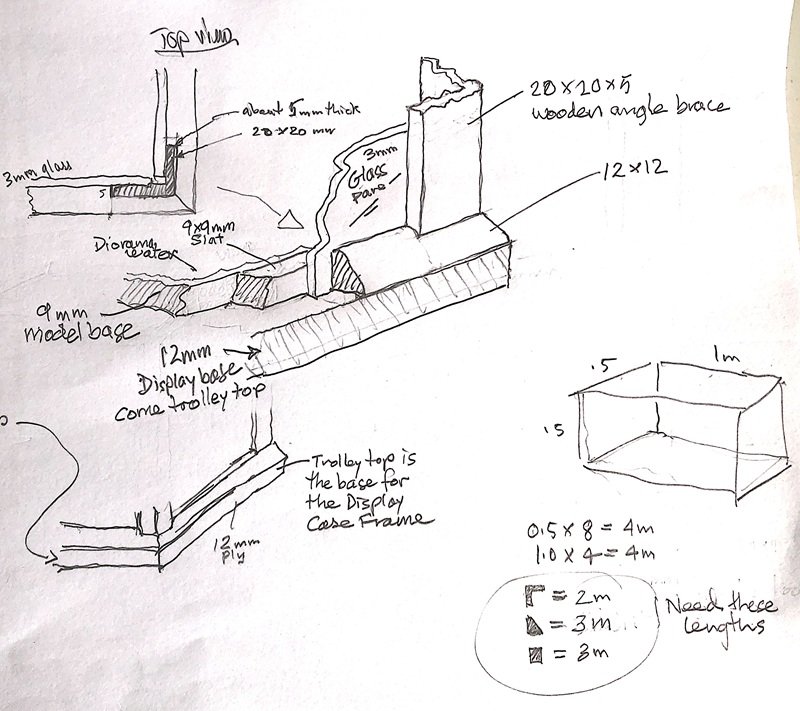 Top view
about 5mm thick
20 x 20 mm
3mm glass
5
3mm
Glass
pane
20 x 20 x 5
wooden angle brace
12 x 12
9x9mm
Slat
Diorama
water
9mm
model base
12mm
Display base
come trolley top
Trolley top is
the base for
the Display
Case Frame
12mm
ply
.5
1m
.5
0.5 x 8 = 4m
1.0 x 4 = 4m
= 2m
= 3m
= 3m
Need these
lengths